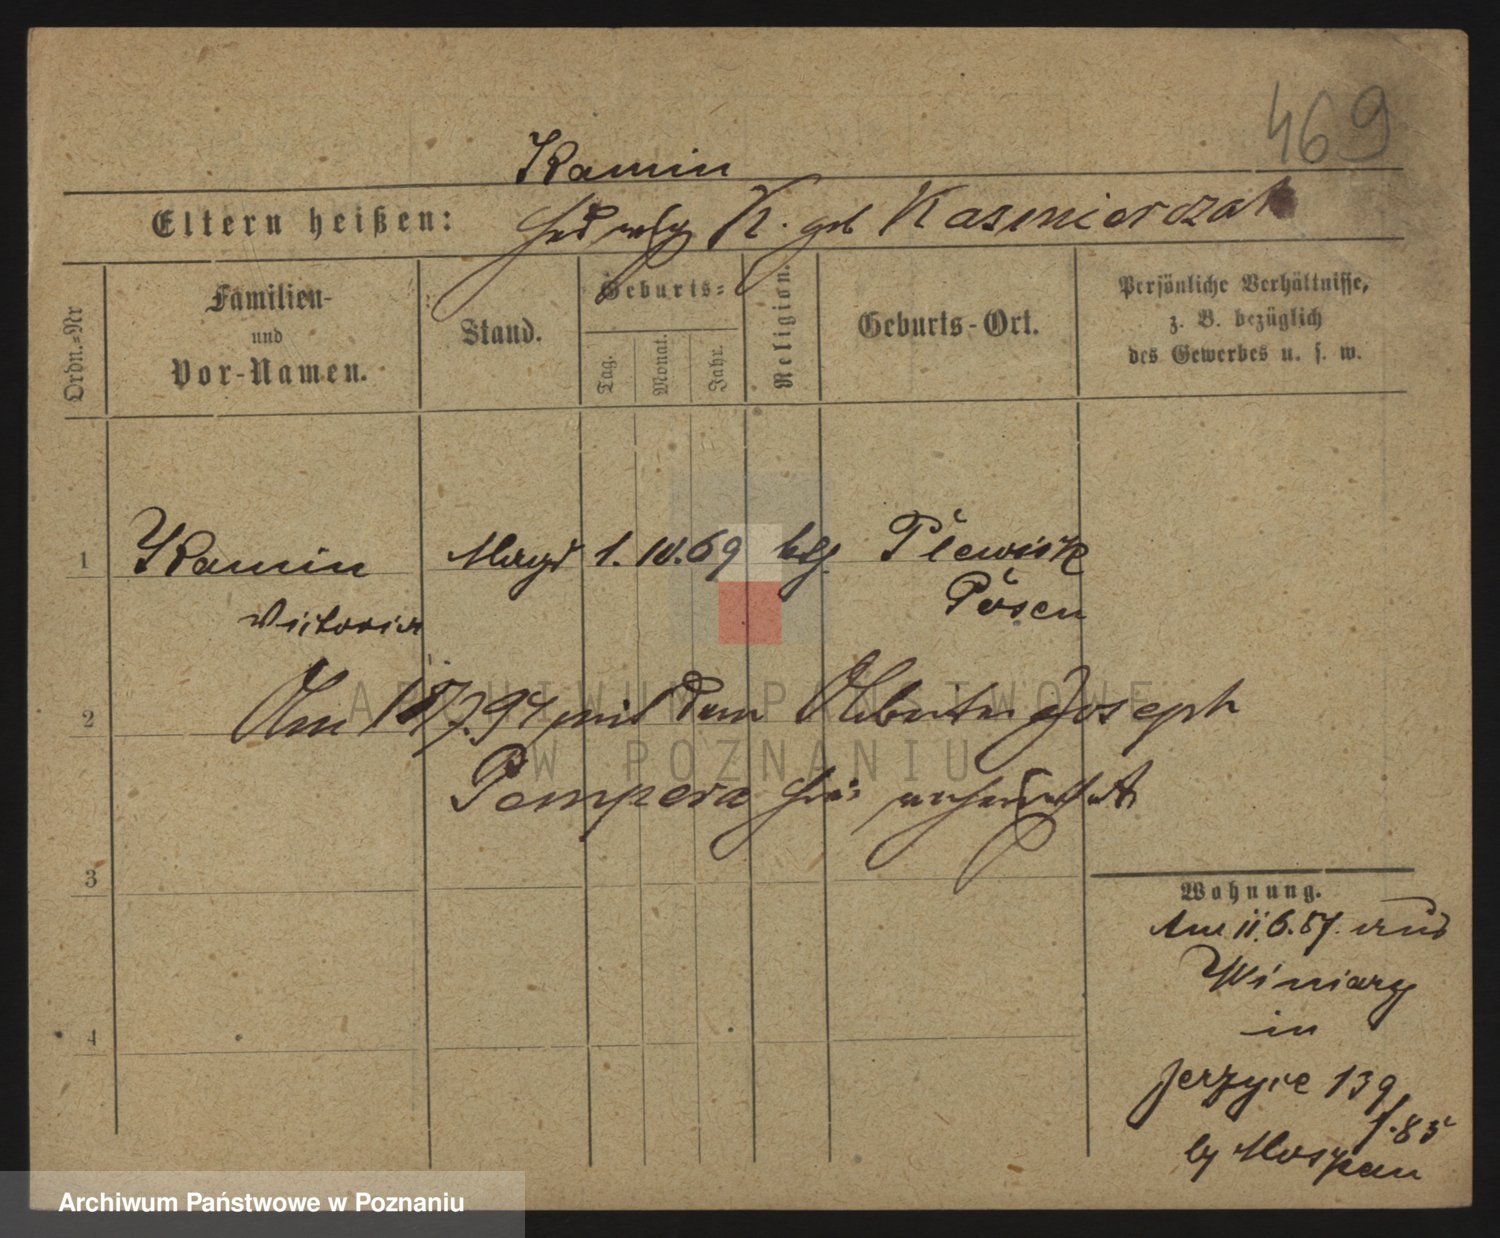 469
Kamin
Eltern heißen: Hedwig K. geb Kasmierczak
Ordn.=Nr
Familien-
und
Vor-Namen.
Stand.
Geburts=
Tag.
Monat.
Jahr.
Religion.
Geburts-Ort.
Persönliche Verhältnisse,
z. B. bezüglich
des Gewerbes u. s. w.
1 Kamin Magd 1. 10. 69 Plewisk
Victoria Posen
2 Am 94 mit dem Arbeiter Joseph
Pempera hier verheirathet
3
Wohnung.
Am 11.6.87. aus
Winiary
in
4
Jerzyce 139
f. 85
by Moszpan
ARCHIWUM PAŃSTWOWE
W POZNANIU
Archiwum Państwowe w Poznaniu